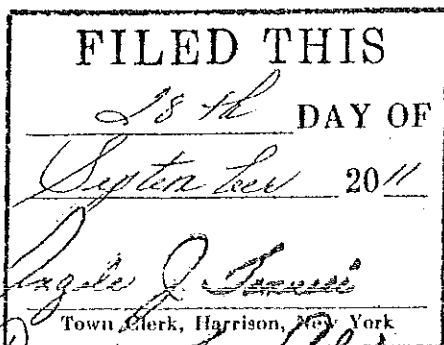 FILED THIS
28th DAY OF
September 2011
J.
Town Clerk, Harrison, New York